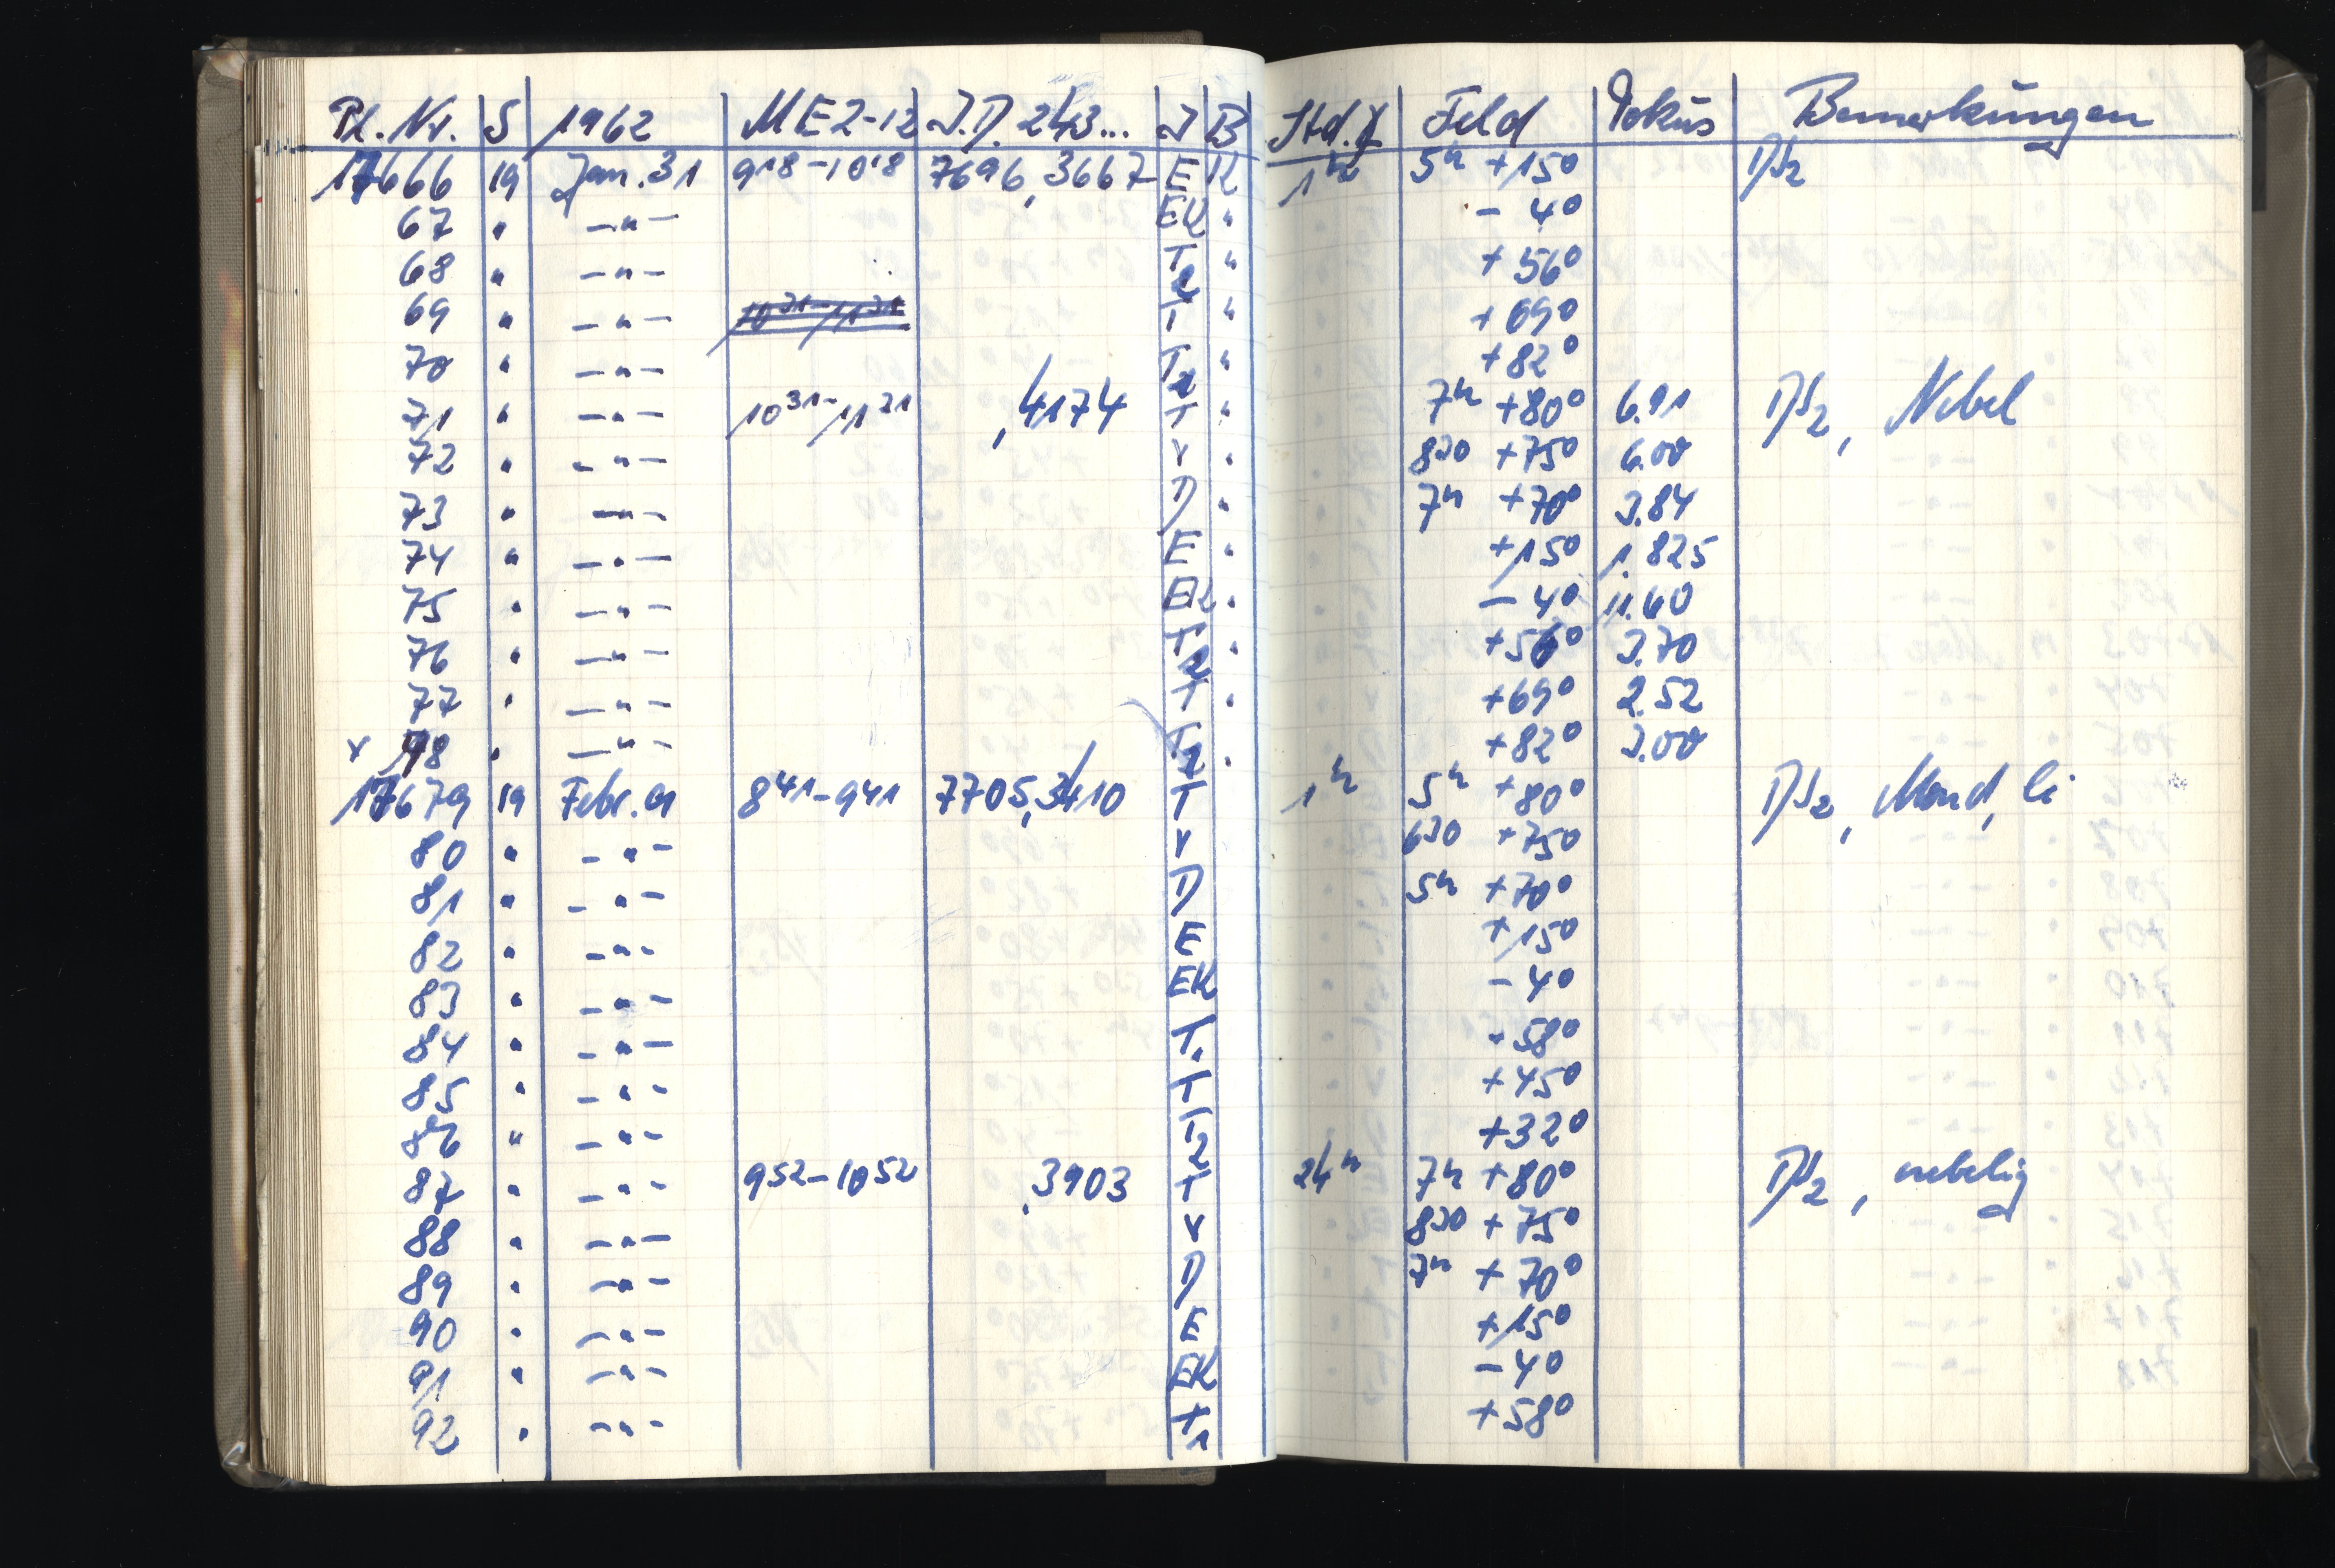 Pl. Nr. S 1962 MEZ-12 J.D. 243... J B Std.⦨ Feld Fokus Bemerkungen
17666 19 Jan. 31 9 18 - 10 18 7696,3667 E R 1h 5h +15° DS2
67 " -"- EK " - 4°
68 " -"- T2 " + 56°
69 " -"- 10 31 - 11 31 T " + 69°
70 " -"- T1 " + 82°
71 " -"- 10 31 - 11 21 ,4174 T " 7h +80° 6.91 DS2, Nebel
72 " -"- V " 8 30 +75° 6.00
73 " -"- D " 7h +70° 3.84
74 " -"- E " +15° 1.825
75 " -"- EK " - 4° 11.60
76 " -"- T2 " +56° 3.70
77 " -"- T " +69° 2.52
x 78 " -"- T1 " +82° 3.00
17679 19 Febr. 9 8 41 - 9 41 7705,3410 T 1h 5h +80° DS2, Mond, li
80 " -"- V 6 30 +75°
81 " -"- D 5h +70°
82 " -"- E +15°
83 " -"- EK - 4°
84 " -"- T1 - 58°
85 " -"- T +45°
86 " -"- T2 +32°
87 " -"- 9 52 - 10 52 ,3903 T 24h 7h +80° DS2, nebelig
88 " -"- V 8 30 +75°
89 " -"- D 7h +70°
90 " -"- E +15°
91 " -"- EK - 4°
92 " -"- T1 +58°